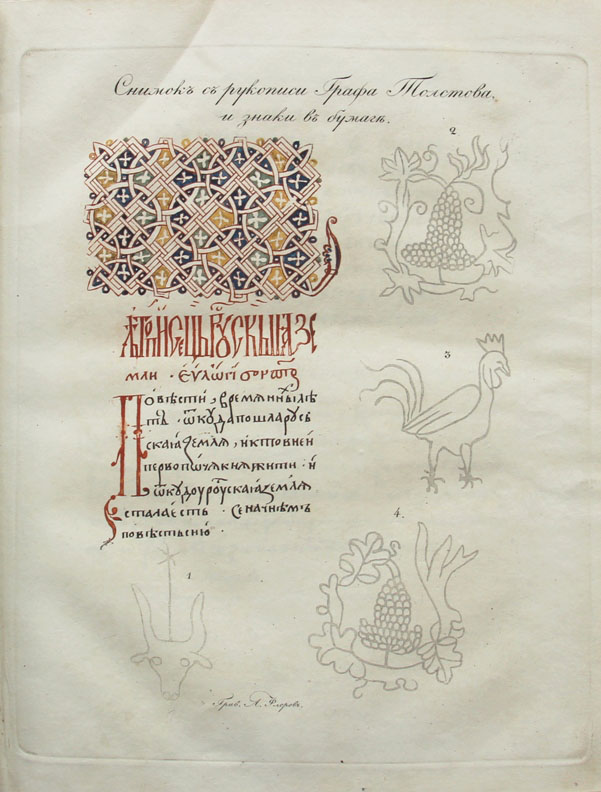 Снимокъ съ рукописи Графа Толстова,
и знаки въ бумагѣ.
2
ЛѢТОПИСЕЦЪ РУСКЫІА ЗЕ
МЛИ
Повѣсти, времянныхъ лѣ
тъ. ѿкуда пошла русь
скаіа земля, и кто в ней
перво почя княжити. и
ѿкуду рускаіа земля
стала есть. се начнемъ
повѣсть сию.
3
4.
1
Грав. А. Флоровъ.